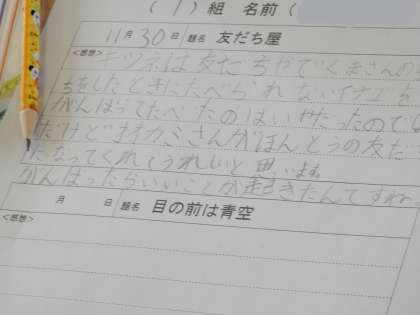 (1)組 名前(
11月30日 題名 友だち屋
<感想>
キツネは友だちやでくまさんの
ちをしたときにたべられないイチゴを
がんばってたべたのはいやだったので
だけどオオカミさんがほんとうの友だ
になってくれてうれしいと思います。
がんばったらいいことが起きたんですね。
月 日 題名 目の前は青空
<感想>